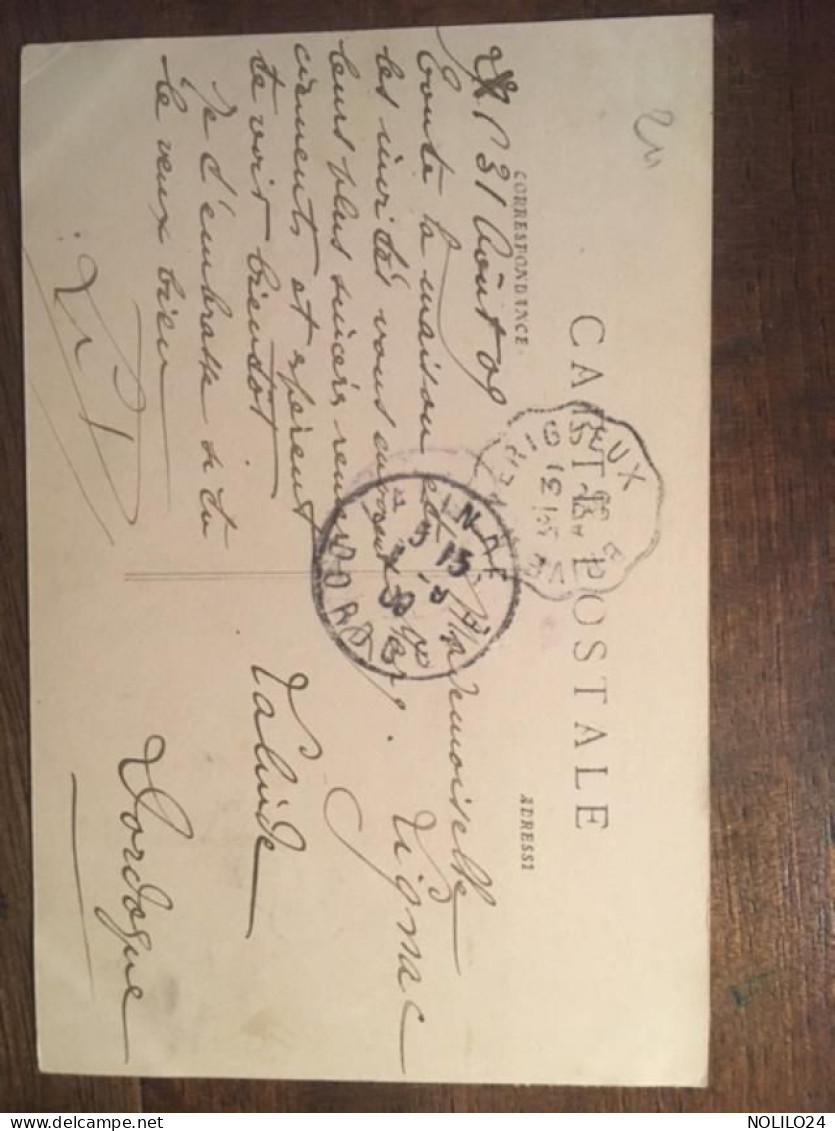 CARTE POSTALE
CORRESPONDANCE
ADRESSE
31 Août 09
Toute la maison et
les invités vous envoient
leurs plus sincères remer
ciements et espèrent
te voir bientôt
Je t'embrasse si tu
le veux bien
Mademoiselle
Vignac
Valuide
Dordogne
PERIGUEUX
31
15
DORD
NOLILO24